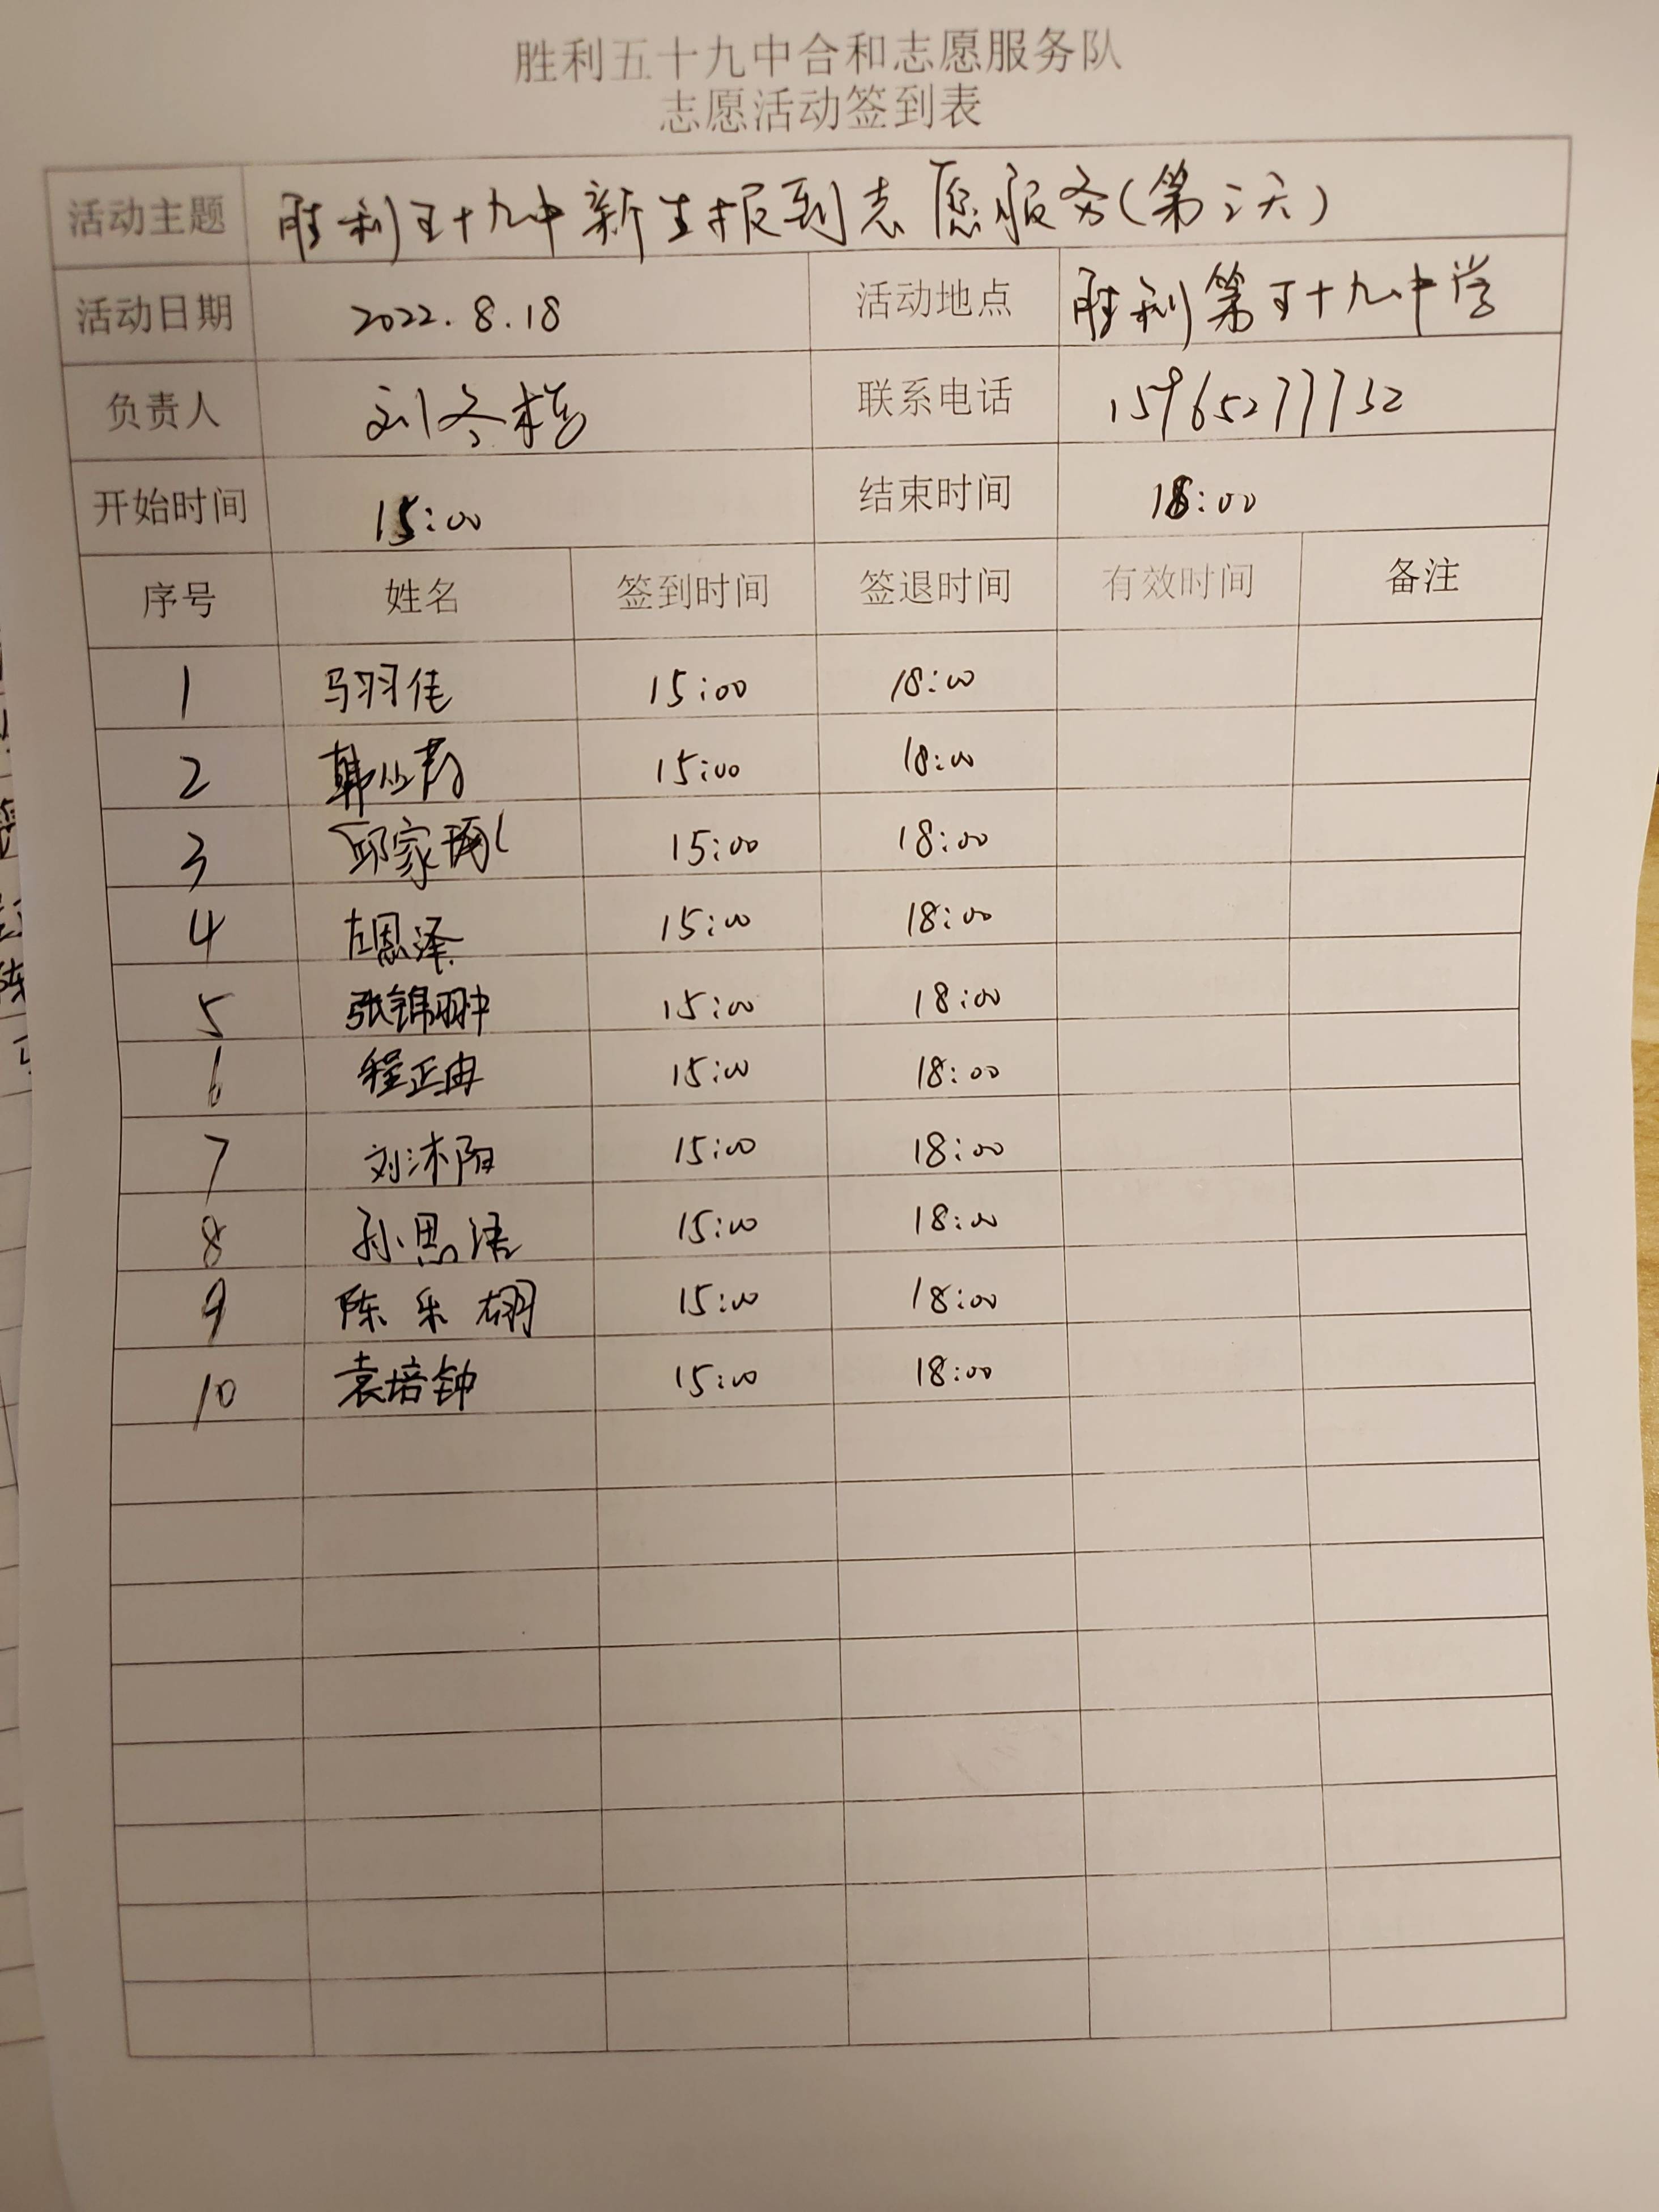 胜利五十九中合和志愿服务队
志愿活动签到表
活动主题 胜利五十九中新生报到志愿服务(第二天)
活动日期 2022.8.18 活动地点 胜利第五十九中学
负责人 刘冬梅 联系电话 15965277732
开始时间 15:00 结束时间 18:00
序号 姓名 签到时间 签退时间 有效时间 备注
1 马羽佳 15:00 18:00
2 15:00 18:00
3 15:00 18:00
4 左恩泽 15:00 18:00
5 张锦翀 15:00 18:00
6 程正冉 15:00 18:00
7 刘沐阳 15:00 18:00
8 孙思语 15:00 18:00
9 陈乐翮 15:00 18:00
10 袁培钟 15:00 18:00